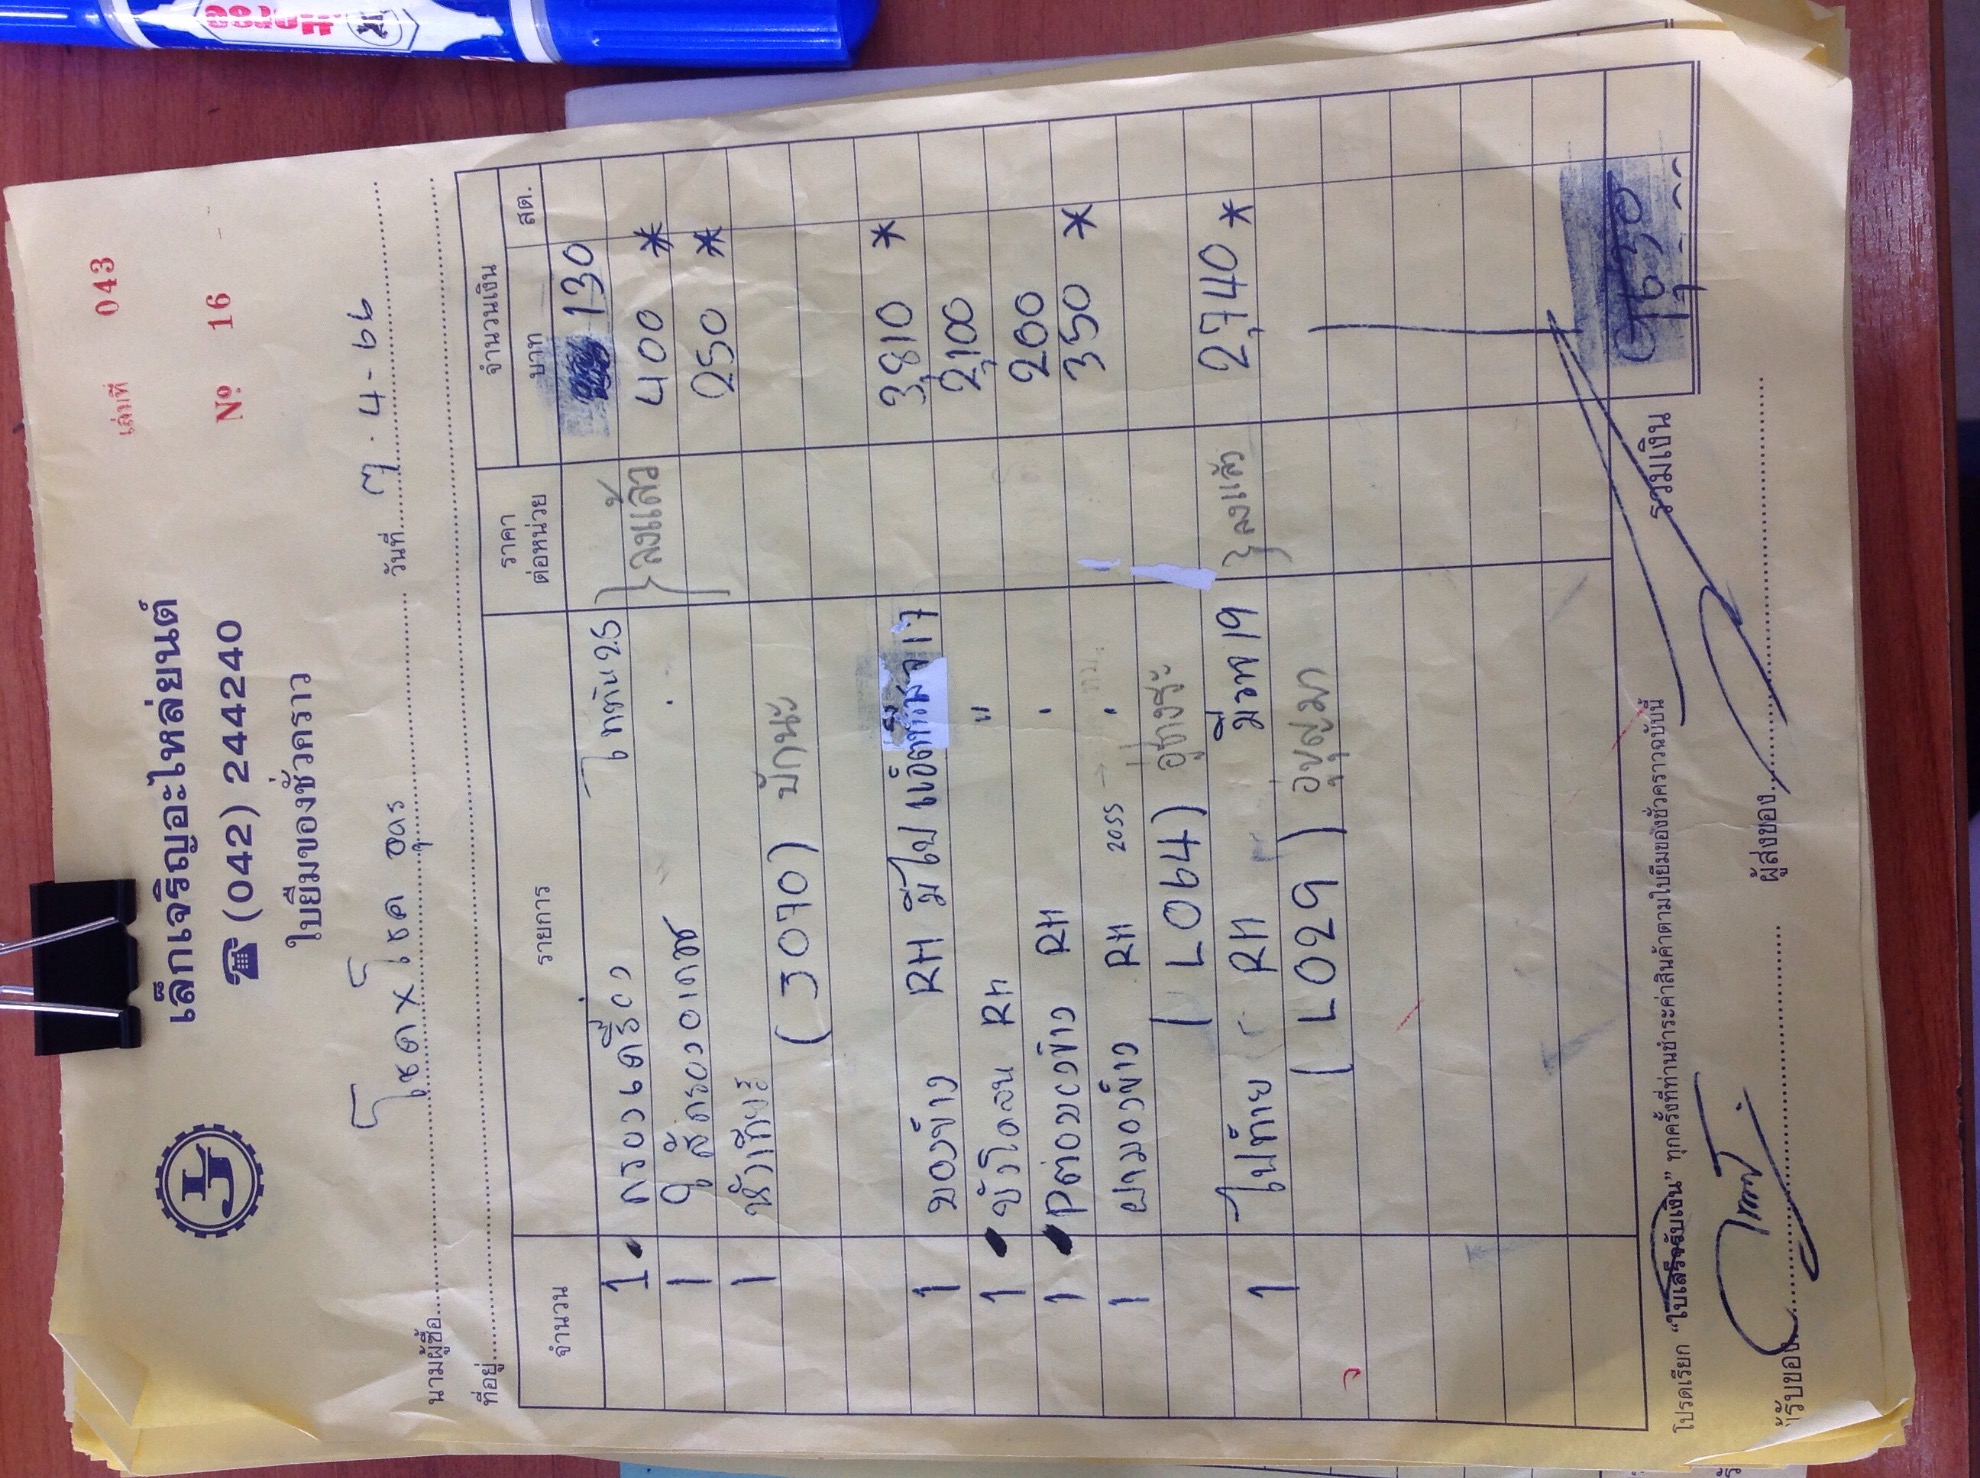 Horse
เล่มที่ 043
Nº 16
เล็กเจริญอะไหล่ยนต์
☎ (042) 244240
ใบยืมของชั่วคราว
LJ
นามผู้ซื้อ โชคXโชค อุดร วันที่ 7.4-66
ที่อยู่
จำนวน รายการ ราคาต่อหน่วย จำนวนเงิน
บาท สต.
1 กรองเครื่อง ไททัน 2.5 130
1 ไส้กรองอากาศ " 400 *
1 หัวเกียร์ 250 *
ลงแล้ว
(3070) บักนะ
1 มองข้าง RH มีไป 17 3,810 *
1 บังโคลน RH " 2,100
1 Pต่อมองข้าง RH " 200
1 ฝามองข้าง RH 2055 → " 350 *
(L064)
1 ไฟท้าย RH มีวพ 19 2,740 *
ลงแล้ว
(L029)
รวมเงิน
โปรดเรียก "ใบเสร็จรับเงิน" ทุกครั้งที่ท่านชำระค่าสินค้าตามใบยืมของชั่วคราวฉบับนี้
ผู้รับของ ผู้ส่งของ